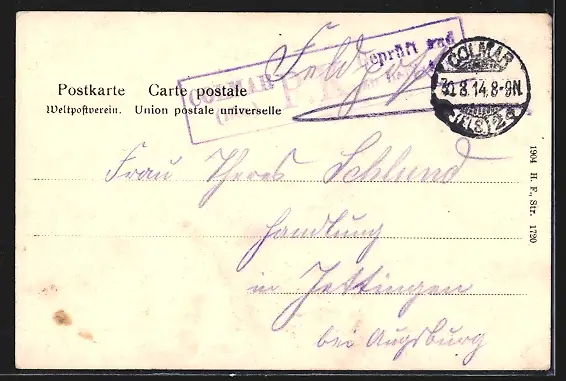 Feldpost
COLMAR
Geprüft und
P. K.
COLMAR
30.8.14.8-9N.
(ELS) 2a
Postkarte Carte postale
Weltpostverein. Union postale universelle
Frau Theres Schlund
Handlung
in Jettingen
bei Augsburg
1904 H. F., Str. 1720